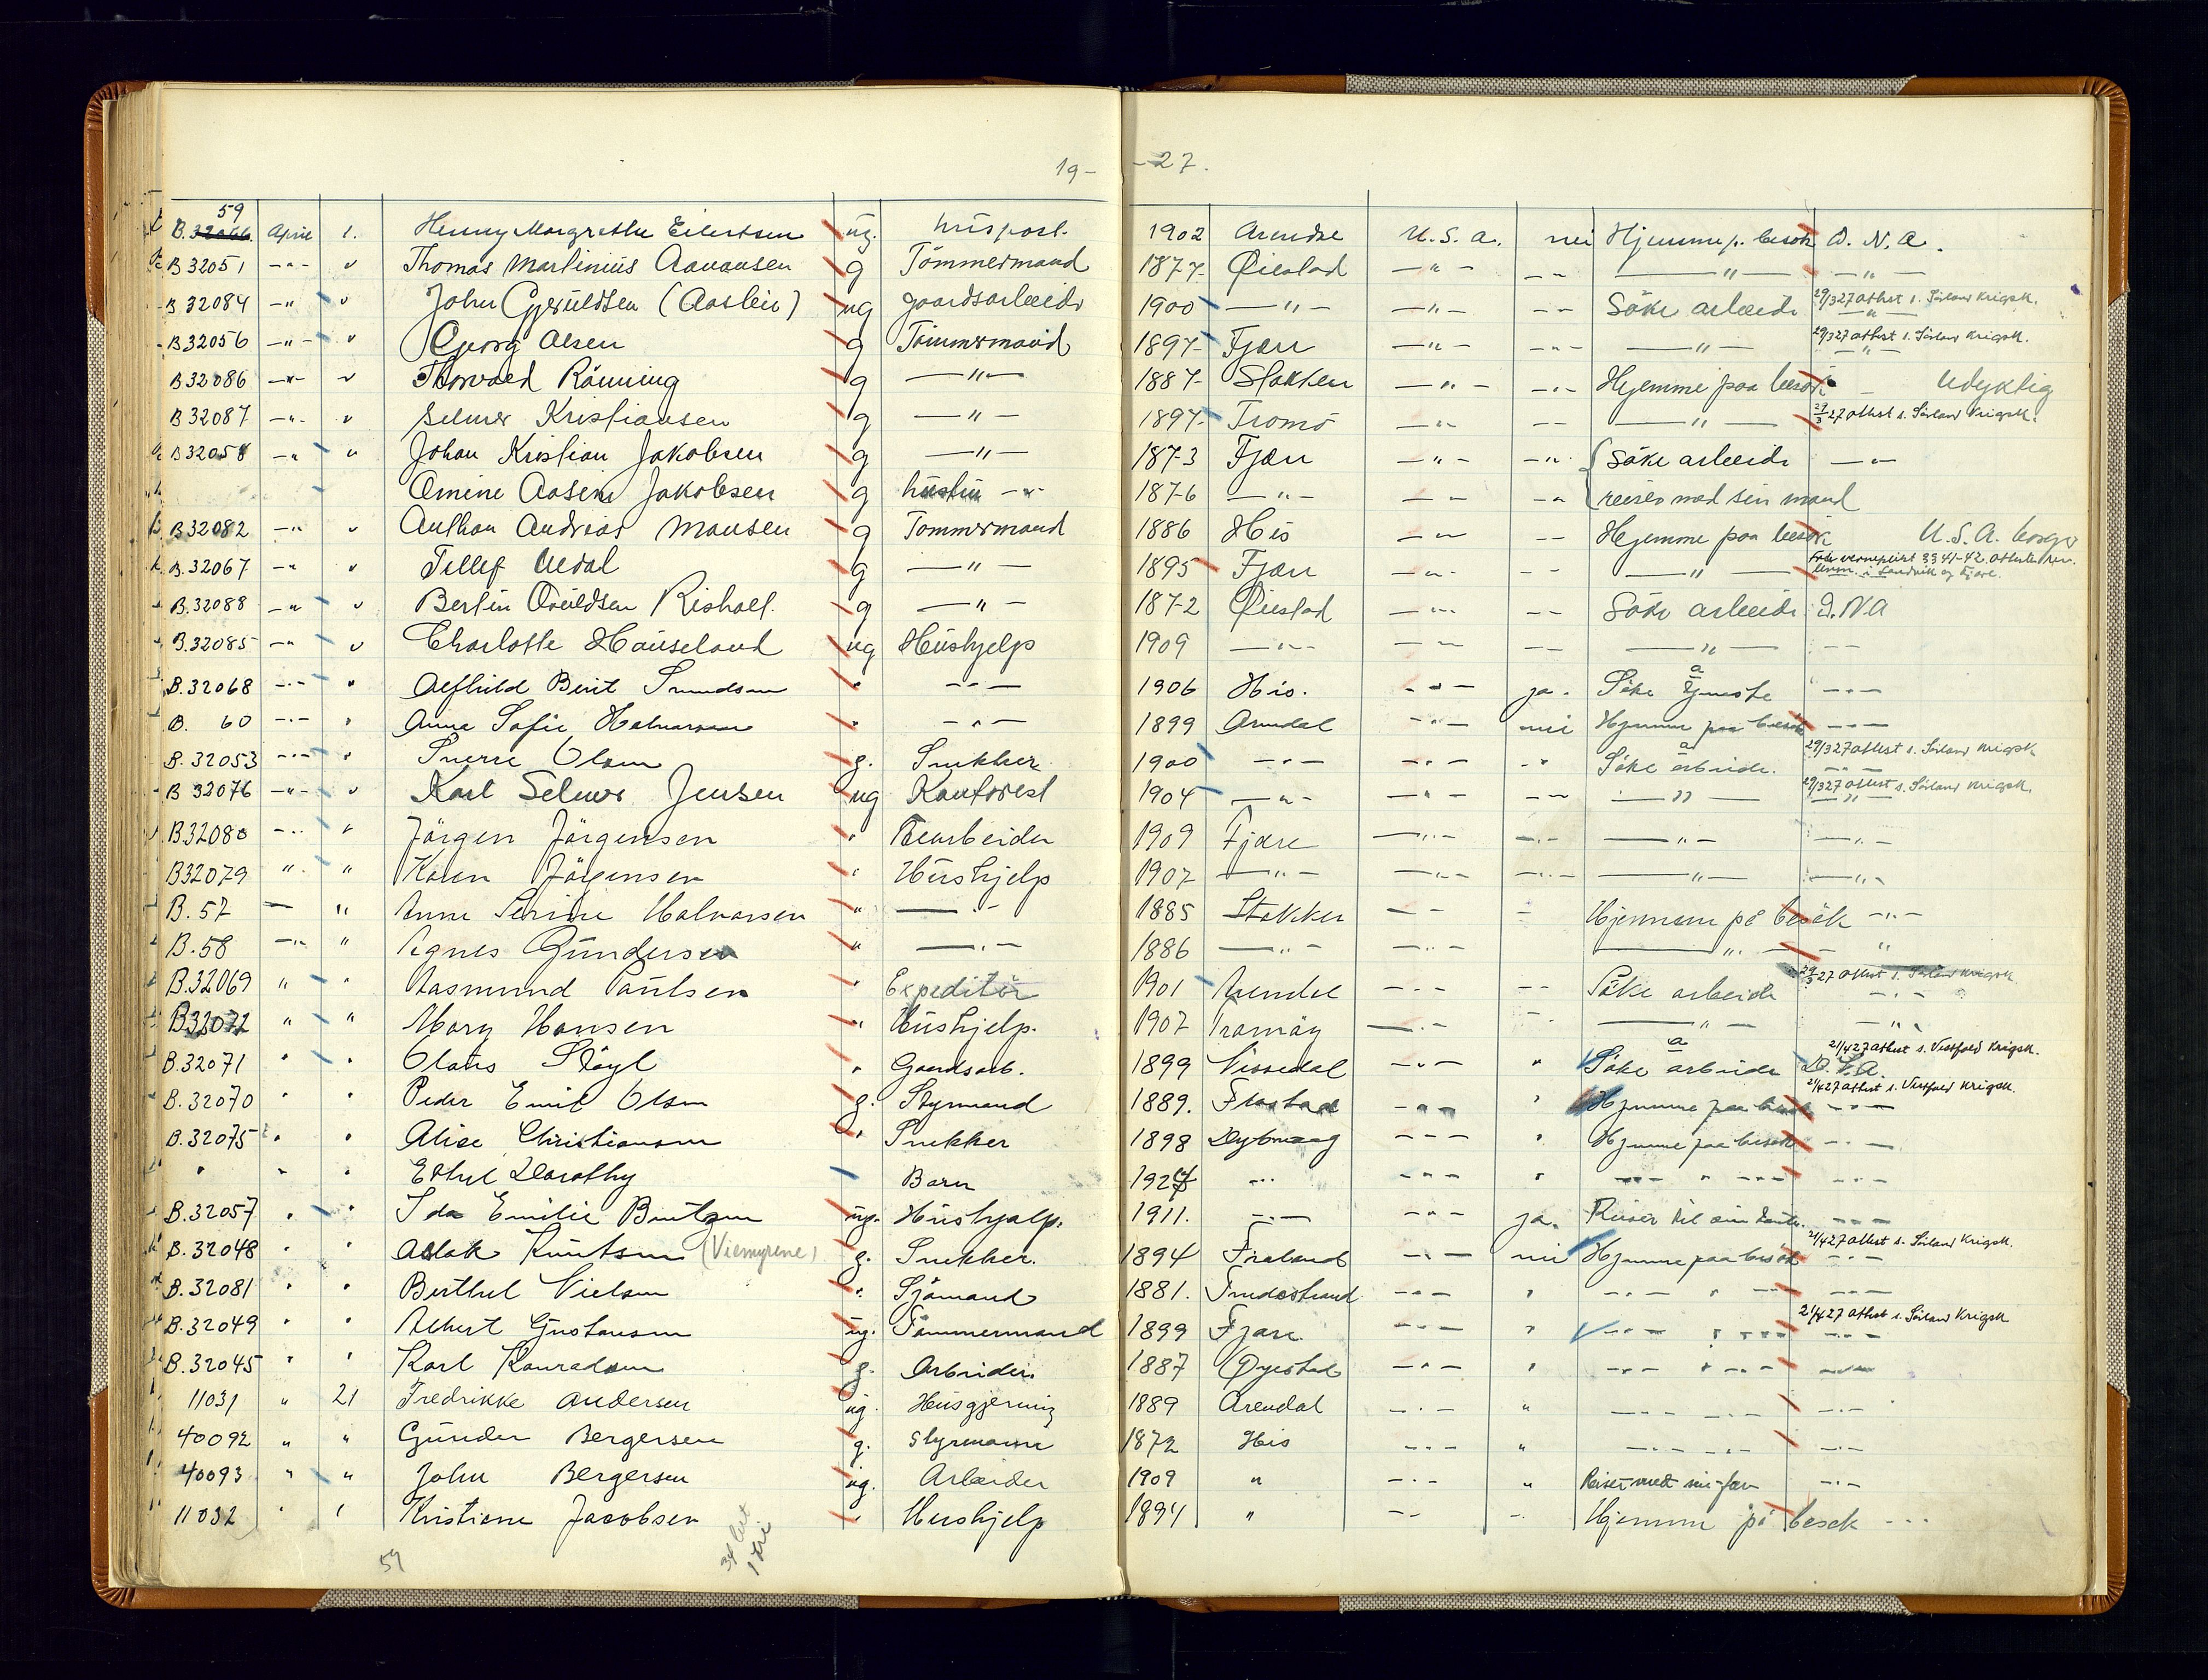 19- -27.
59
B. 32066. April 1. Henny Margrethe Eilertsen ug. huspost. 1902 Arendal U.S.A. nei Hjemme p. besøk D.N.A.
B 32051 -"- " Thomas Martinius Aanonsen g Tömmermand 1877 Øiestad -"- -"- -"- -"-
B 32084 -"- " John Gjeruldsen (Aaslei) ug gaardsarbeider 1900 -"- -"- -"- Söke arbeide 29/3 27 attest s. Sörland Krigsk.
B 32056 -"- " Georg Olsen g Tömmermand 1897 Fjære -"- -"- -"- 29/3 27 attest s. Sörland Krigsk.
B 32086 -"- " Thorvald Rönning g -"- 1887 Stokken -"- -"- Hjemme paa besøk Udyktig
B 32087 -"- " Selmer Kristiansen g -"- 1897 Tromö -"- -"- -"- 29/3 27 attest s. Sörland Krigsk.
B 32058 -"- " Johan Kristian Jakobsen g -"- 1873 Fjære -"- -"- Söke arbeide -"-
Amine Aasine Jakobsen g hustru -"- 1876 -"- -"- -"- reiser med sin mand
B 32082 -"- " Anthon Andreas Monsen g Tommermand 1886 His -"- -"- Hjemme paa besøk U.S.A. borger
B. 32067 -"- " Tellef Uedal g -"- 1895 Fjære -"- -"- -"- §§ 41-42.
B. 32088 -"- " Bertin Ovuldsen Risholt. g -"- 1872 Øiestad -"- -"- Söke arbeide D.N.A
B. 32085 -"- " Charlotte Hauseland ug Hushjelp 1909 -"- -"- -"- -"- -"-
B. 32068 -"- " Alfhild Berit " -"- 1906 His. -"- ja. Söke tjeneste -"-
B. 60 -"- " Anna Sofie Halvorsen " -"- 1899 Arendal -"- nei Hjemme paa besøk -"-
B. 32053 -"- " Sverre Olsen g. Snekker 1900 -"- -"- -"- Söke arbeide. 29/3 27 attest s. Sörland Krigsk
B 32076 -"- " Karl Selmer Jensen ug Kontorist 1904 -"- -"- -"- -"- 29/3 27 attest s. Sörland Krigsk.
B32080 -"- " Jörgen Jörgensen " 1909 Fjære -"- -"- -"- -"-
B32079 " " Karen Jörgensen " Hushjelp 1907 -"- -"- -"- -"- -"-
B. 57 - " Anne Serine Halvorsen " -"- 1885 Stokken -"- -"- Hjemme på besök -"-
B. 58 -"- " Agnes Gundersen " -"- 1886 -"- -"- -"- "
B.32069 " " Aasmund Paulsen " Expeditör 1901 Arendal -"- -"- Söke arbeide 29/3 27 attest s. Sörland Krigsk
B32072 " " Mary Hansen " Hushjelp. 1907 Tromöy -"- -"- -"- -"-
B.32071 " " Olaus " Gaardsarb. 1899 Nissedal -"- " Söke arbeide 21/4 27 attest s. Vestfold Krigsk.
B. 32070 " " Peder Emil Olsen g. Styrmand 1889. Flostad -"- " Hjemme paa besøk 21/4 27 attest s. Vestfold Krigsk.
B. 32075 " " Alice Christiansen " Snekker 1898 Dybvaag -"- " Hjemme paa besøk -"-
" " " Ethel Dorothy Barn 1924 -"- -"- " -"- -"-
B. 32057 " " Ida Emilie Bentzen ug. Hushjælp. 1911. -"- -"- ja. Reiser til sin tante. -"-
B. 32048 " " Aslak Knutsen (Viemyrene) g. Snekker. 1894 Froland -"- nei Hjemme paa besøk 21/4 27 attest s. Sörland Krigsk.
B. 32081 " " Berthel Nielsen " Sjömand 1881. -"- " -"- -"-
B. 32049 " " Albert Gustavsen ug. Tömmermand 1899 Fjære -"- " -"- 21/4 27 attest s. Sörland Krigsk
B. 32045 " " Karl Konradsen g. Arbeider. 1887 Øyestad -"- " -"- -"-
11031 " 21 Fredrikke Andersen ug. Husgjerning 1889 Arendal -"- " -"- -"-
40092 " " Gunder Bergersen g. Styrmann 1872 His -"- " -"- -"-
40093 " " John Bergersen ug. Arbeider 1909 " -"- " Reiser med sin far -"-
11032 " " Kristiane Jacobsen " Hushjelp 1894 " -"- -"- Hjemme på besök -"-
59